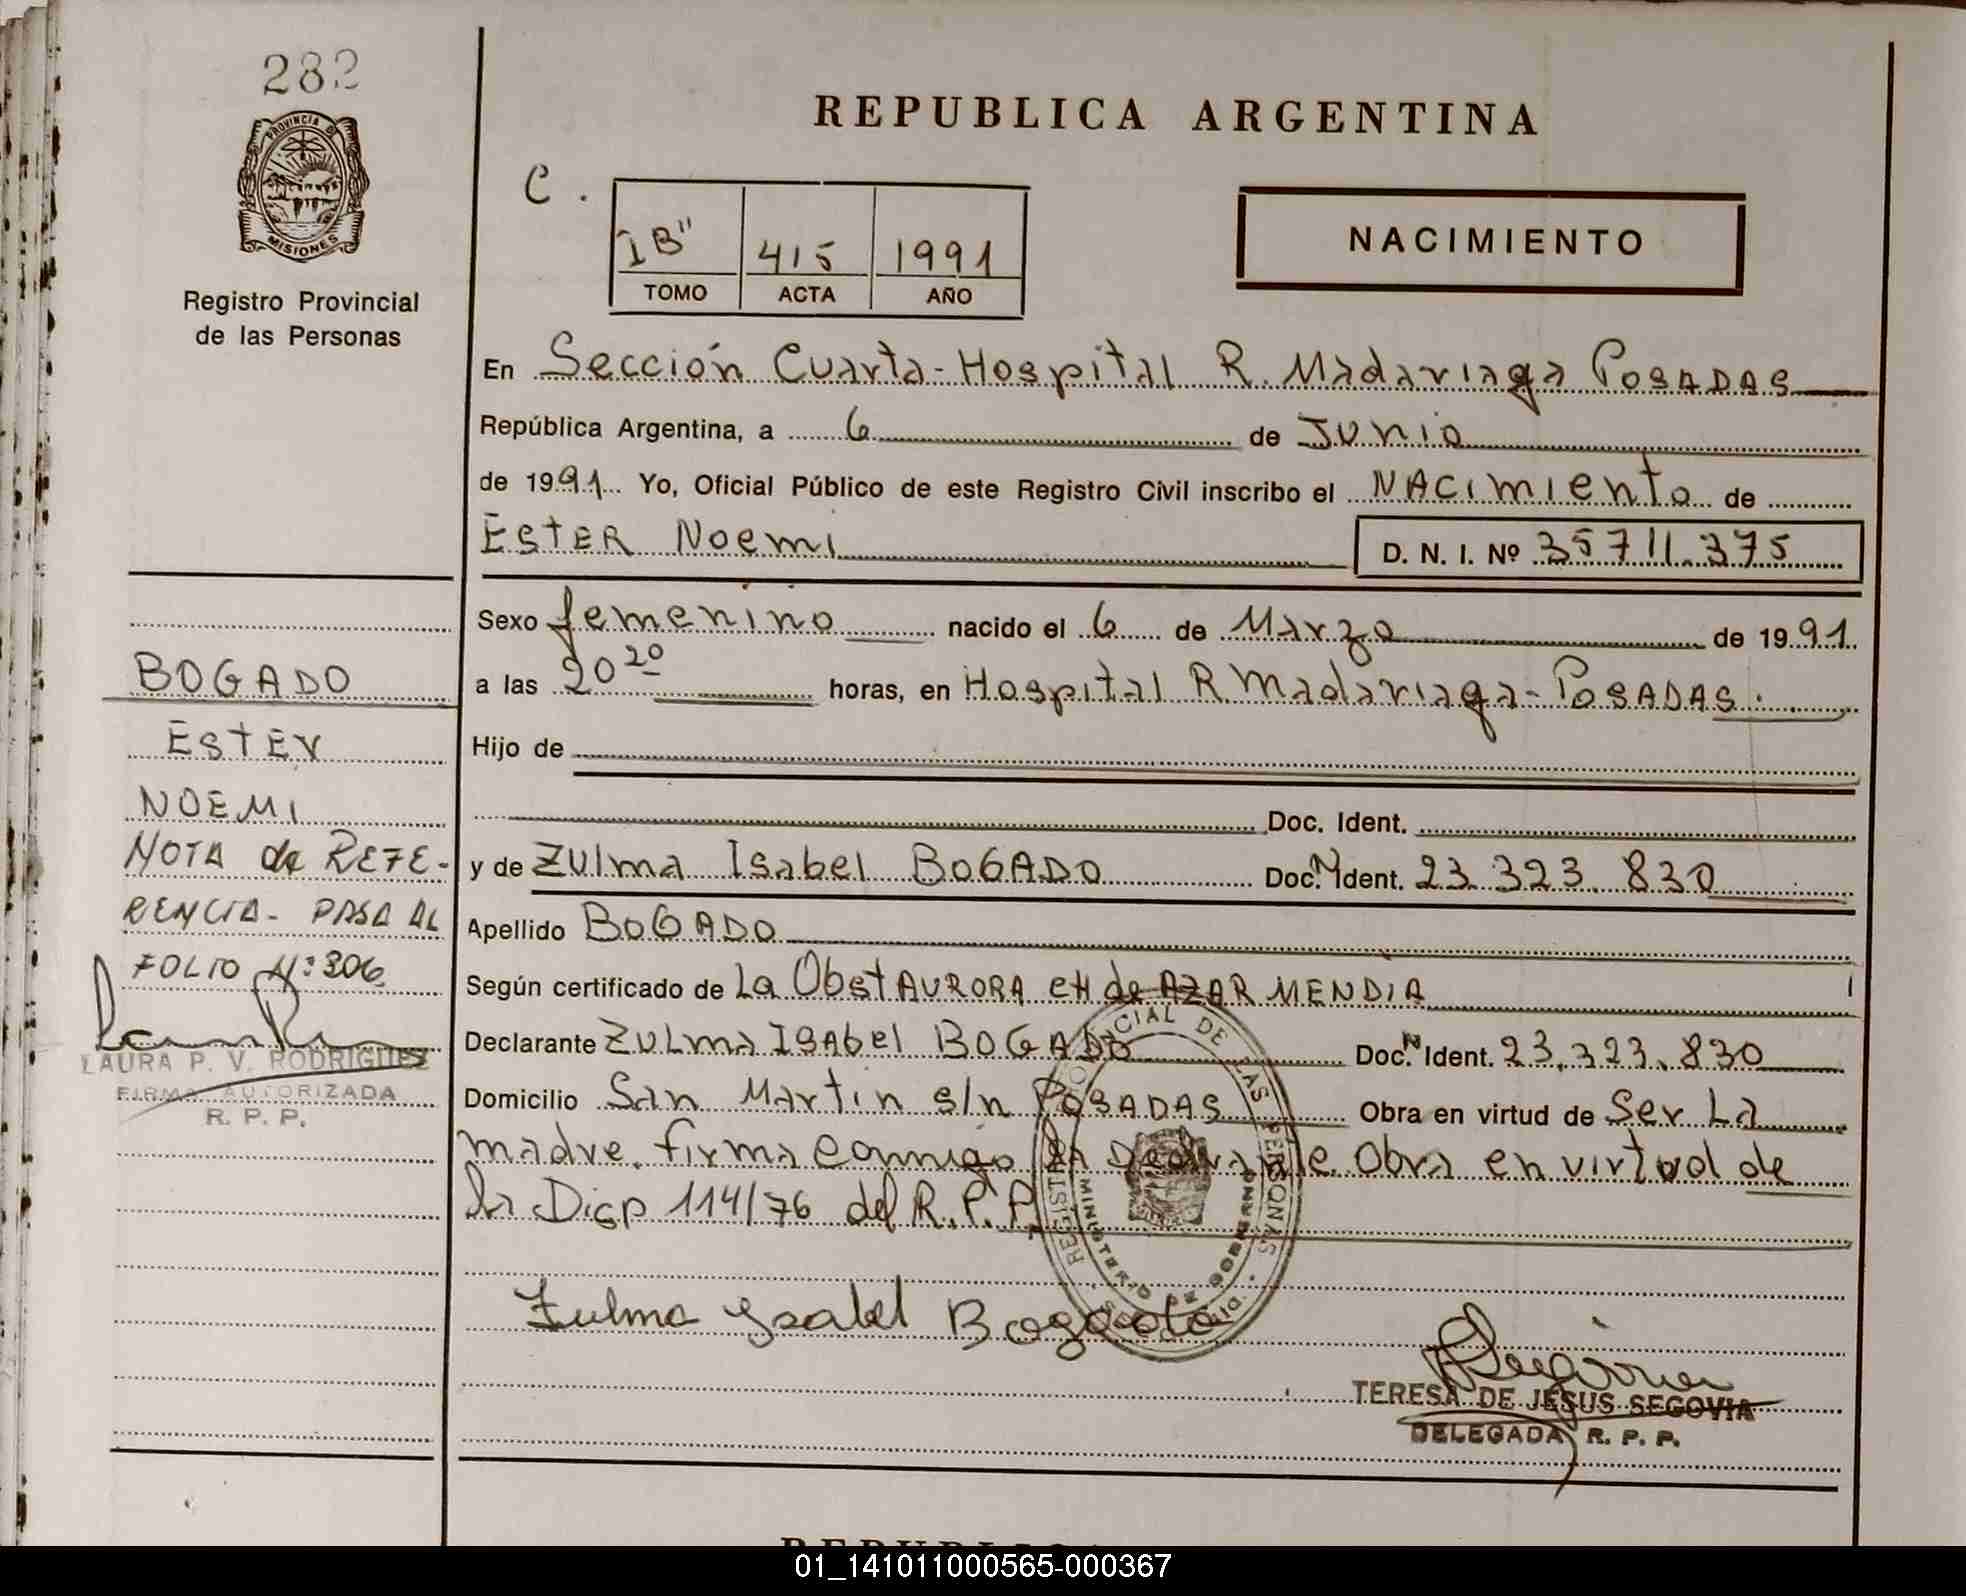 282
PROVINCIA DE
MISIONES
Registro Provincial
de las Personas
REPUBLICA ARGENTINA
C.
IB" 415 1991
TOMO ACTA AÑO
NACIMIENTO
En Sección Cuarta-Hospital R. Madariaga POSADAS
República Argentina, a 6 de Junio
de 1991 Yo, Oficial Público de este Registro Civil inscribo el NACimiento de
ESTER Noemi D. N. I. Nº 35711.375
Sexo femenino nacido el 6 de Marzo de 1991.
a las 20 20 horas, en Hospital R Madariaga-POSADAS.
Hijo de
Doc. Ident.
y de Zulma Isabel BOGADO Doc. N Ident. 23.323.830
Apellido BOGADO
Según certificado de La Obst AURORA CH de AZAR MENDIA
Declarante Zulma ISAbel BOGADO Doc. N Ident. 23.323.830
Domicilio San Martin s/n POSADAS Obra en virtud de Ser La
madre. firma conmigo la declarante. Obra en virtud de
la Disp 114/76 del R.P.P.
Zulma Ysabel Bogado
TERESA DE JESUS SEGOVIA
DELEGADA R. P. P.
REGISTRO PROVINCIAL DE LAS PERSONAS
MINISTERIO DE GOBIERNO
BOGADO
ESTER
NOEMI
NOTA de REFE-
RENCIA- PASA AL
FOLIO Nº 306
LAURA P. V. RODRIGUEZ
FIRMA AUTORIZADA
R. P. P.
01_141011000565-000367